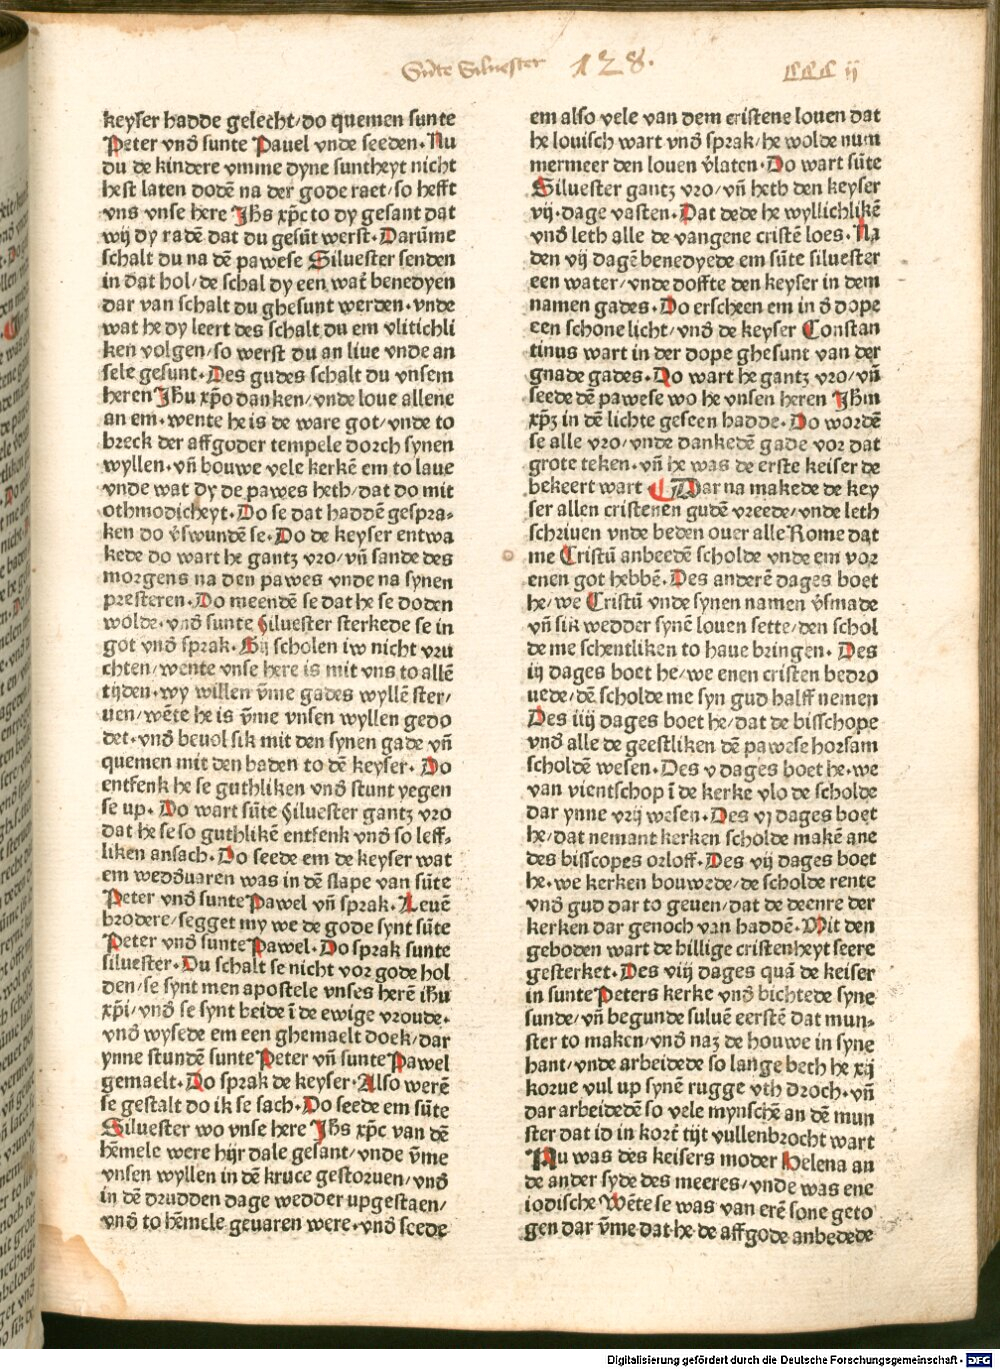 Sūte Siluester 128. CCC ij
keyser hadde gelecht/do quemen sunte
Peter vnd̄ sunte Pauel vnde seeden. Nu
du de kindere vmme dyne suntheyt nicht
hest laten dodē na der gode raet/so hefft
vns vnse here Jhs xp̄c to dy gesant dat
wij dy radē dat du gesūt werst. Darūme
schalt du na dē pawese Siluester senden
in dat hol/de schal dy een wat̄ benedyen
dar van schalt du ghesunt werden. vnde
wat he dy leert des schalt du em vlitichli
ken volgen/so werst du an liue vnde an
sele gesunt. Des gudes schalt du vnsem
heren Jhu xp̄o danken/vnde loue allene
an em. wente he is de ware got/vnde to
breck der affgoder tempele dorch synen
wyllen. vn̄ bouwe vele kerkē em to laue
vnde wat dy de pawes heth/dat do mit
othmodicheyt. Do se dat haddē gespra-
ken do v̄swundē se. Do de keyser entwa
kede do wart he gantz vro/vn̄ sande des
morgens na den pawes vnde na synen
presteren. Do meendē se dat he se doden
wolde. vnd̄ sunte Siluester sterkede se in
got vnd̄ sprak. Gij scholen iw nicht vru
chten/wente vnse here is mit vns to allē
tijden. wy willen v̄me gades wyllē ster/
uen/wēte he is v̄me vnsen wyllen gedo
det. vnd̄ beuol sik mit den synen gade vn̄
quemen mit den baden to dē keyser. Do
entfenk he se guthliken vnd̄ stunt yegen
se up. Do wart sūte Siluester gantz vro
dat he se so guthlikē entfenk vnd̄ so leff-
liken ansach. Do seede em de keyser wat
em wedd̄uaren was in dē slape van sūte
Peter vnd̄ sunte Pawel vn̄ sprak. Leuē
brodere/segget my we de gode synt sūte
Peter vnd̄ sunte Pawel. Do sprak sunte
siluester. Du schalt se nicht vor gode hol
den/se synt men apostele vnses herē ihu
xp̄i/vnd̄ se synt beide ī de ewige vroude.
vnd̄ wysede em een ghemaelt doek/dar
ynne stundē sunte Peter vn̄ sunte Pawel
gemaelt. Do sprak de keyser. Also werē
se gestalt do ik se sach. Do seede em sūte
Siluester wo vnse here Jhs xp̄c van dē
hēmele were hijr dale gesant/vnde v̄me
vnsen wyllen in dē kruce gestoruen/vnd̄
in dē drudden dage wedder upgestaen/
vnd̄ to hēmele geuaren were. vnd̄ seede
em also vele van dem cristene louen dat
he louisch wart vnd̄ sprak/he wolde num
mermeer den louen v̄laten. Do wart sūte
Siluester gantz vro/vn̄ heth den keyser
vij. dage vasten. Dat dede he wyllichlikē
vnd̄ leth alle de vangene cristē loes. Na
den vij dagē benedyede em sūte siluester
een water/vnde doffte den keyser in dem
namen gades. Do erscheen em in d̄ dope
een schone licht/vnd̄ de keyser Constan
tinus wart in der dope ghesunt van der
gnade gades. Do wart he gantz vro/vn̄
seede dē pawese wo he vnsen heren Jhm
xp̄z in dē lichte geseen hadde. Do wordē
se alle vro/vnde dankedē gade vor dat
grote teken. vn̄ he was de erste keiser de
bekeert wart. Dar na makede de key
ser allen cristenen gudē vreede/vnde leth
schriuen vnde beden ouer alle Rome dat
me Cristū anbeedē scholde vnde em vor
enen got hebbē. Des anderē dages boet
he/we Cristū vnde synen namen v̄smade
vn̄ sik wedder synē louen sette/den schol
de me schentliken to haue bringen. Des
iij dages boet he/we enen cristen bedro
uede/dē scholde me syn gud halff nemen
Des iiij dages boet he/dat de bisschope
vnd̄ alle de geestliken dē pawese horsam
scholdē wesen. Des v dages boet he. we
van vientschop ī de kerke vlo de scholde
dar ynne vrij wesen. Des vj dages boet
he/dat nemant kerken scholde makē ane
des bisscopes orloff. Des vij dages boet
he. we kerken bouwede/de scholde rente
vnd̄ gud dar to geuen/dat de deenre der
kerken dar genoch van haddē. Mit den
geboden wart de hillige cristenheyt seere
gesterket. Des viij dages quā de keiser
in sunte Peters kerke vnd̄ bichtede syne
sunde/vn̄ begunde suluē eerstē dat mun-
ster to maken/vnd̄ naz de houwe in syne
hant/vnde arbeidede so lange beth he xij
korue vul up synē rugge vth droch. vn̄
dar arbeidedē so vele mynschē an dē mun
ster dat id in kort̄ tijt vullenbrocht wart
Nu was des keisers moder Helena an
de ander syde des meeres/vnde was ene
iodische Wēte se was van erē sone geto
gen dar v̄me dat he de affgode anbedede
Digitalisierung gefördert durch die Deutsche Forschungsgemeinschaft - DFG